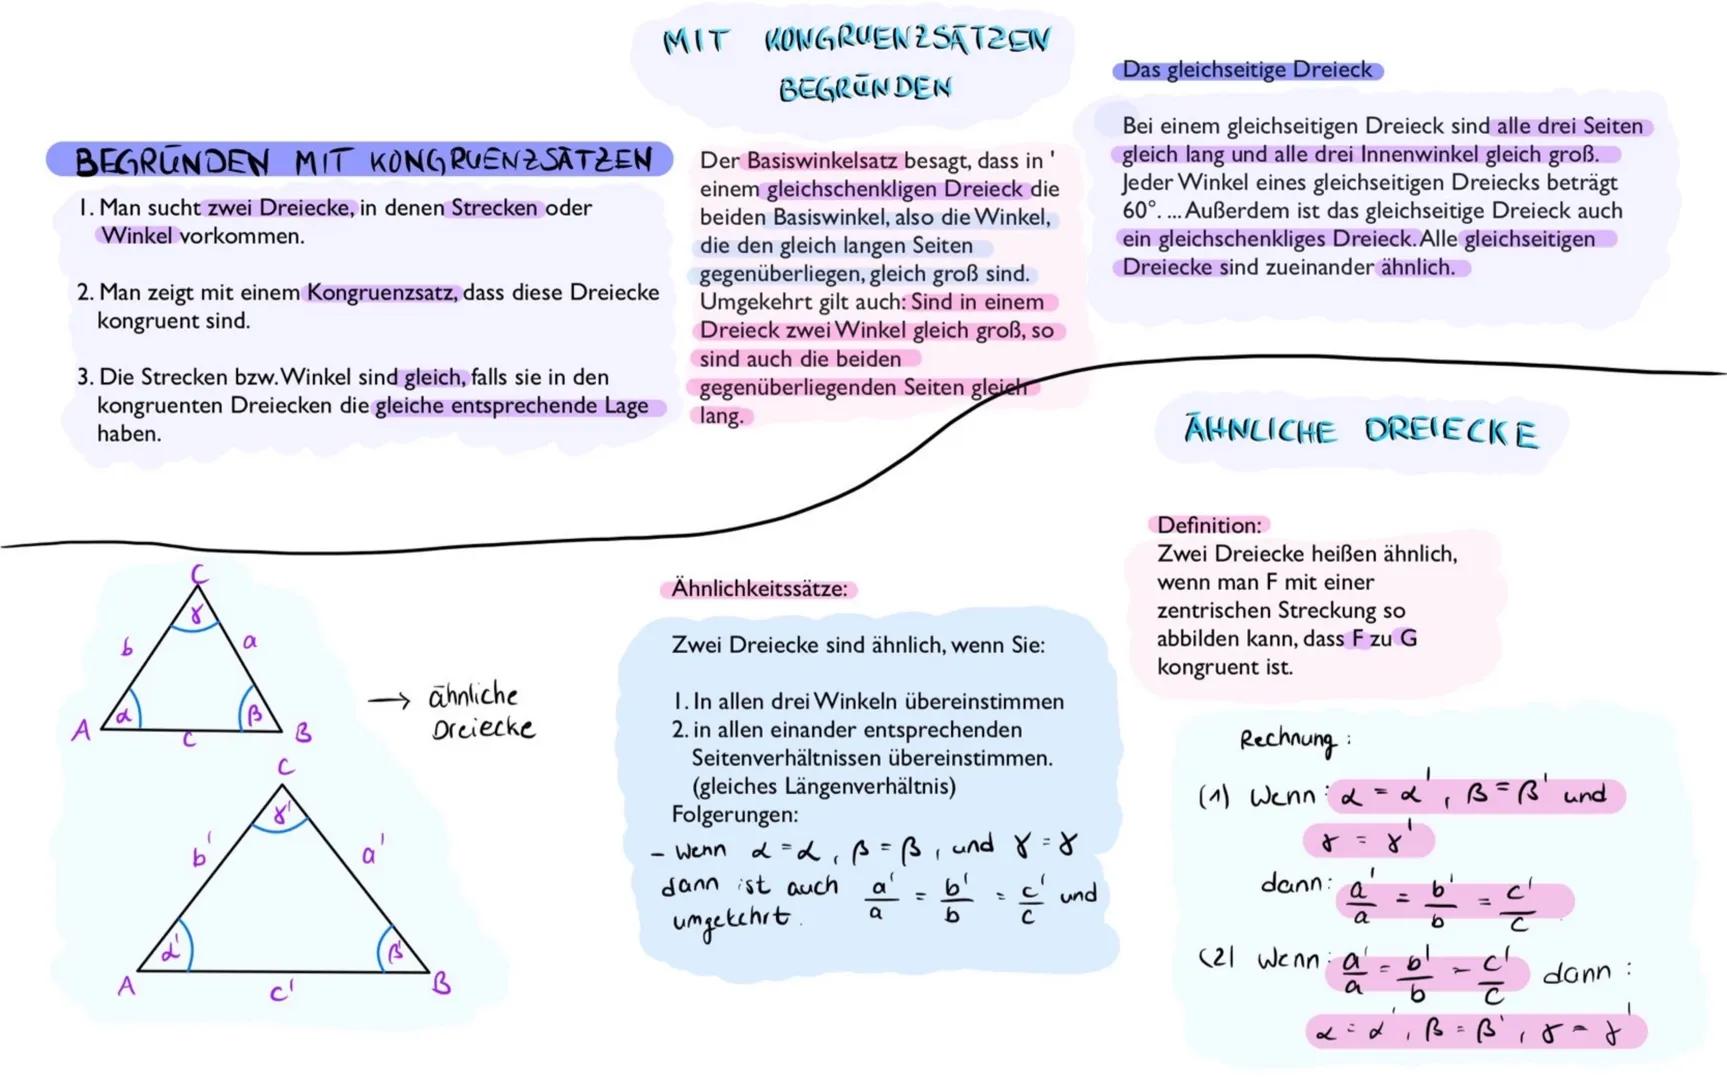 MIT KONGRUENZSÄTZEN
BEGRÜNDEN
BEGRÜNDEN MIT KONGRUENZSÄTZEN
1. Man sucht zwei Dreiecke, in denen Strecken oder
Winkel vorkommen.
2. Man zeigt mit einem Kongruenzsatz, dass diese Dreiecke
kongruent sind.
3. Die Strecken bzw. Winkel sind gleich, falls sie in den
kongruenten Dreiecken die gleiche entsprechende Lage
haben.
Der Basiswinkelsatz besagt, dass in '
einem gleichschenkligen Dreieck die
beiden Basiswinkel, also die Winkel,
die den gleich langen Seiten
gegenüberliegen, gleich groß sind.
Umgekehrt gilt auch: Sind in einem
Dreieck zwei Winkel gleich groß, so
sind auch die beiden
gegenüberliegenden Seiten gleich
lang.
Das gleichseitige Dreieck
Bei einem gleichseitigen Dreieck sind alle drei Seiten
gleich lang und alle drei Innenwinkel gleich groß.
Jeder Winkel eines gleichseitigen Dreiecks beträgt
60°. ... Außerdem ist das gleichseitige Dreieck auch
ein gleichschenkliges Dreieck. Alle gleichseitigen
Dreiecke sind zueinander ähnlich.
ÄHNLICHE DREIECKE
C
γ
b
a
α
β
A
c
B
→ ähnliche
Dreiecke
C
γ'
b'
a'
α'
β'
A
c'
B
Ähnlichkeitssätze:
Zwei Dreiecke sind ähnlich, wenn Sie:
1. In allen drei Winkeln übereinstimmen
2. in allen einander entsprechenden
Seitenverhältnissen übereinstimmen.
(gleiches Längenverhältnis)
Folgerungen:
- Wenn α = α, β = β, und γ = γ
dann ist auch a'/a = b'/b = c'/c und
umgekehrt.
Definition:
Zwei Dreiecke heißen ähnlich,
wenn man F mit einer
zentrischen Streckung so
abbilden kann, dass F zu G
kongruent ist.
Rechnung:
(1) Wenn: α = α', β = β' und
γ = γ'
dann: a'/a = b'/b = c'/c
(2) wenn: a'/a = b'/b = c'/c dann:
α = α', β = β', γ = γ'